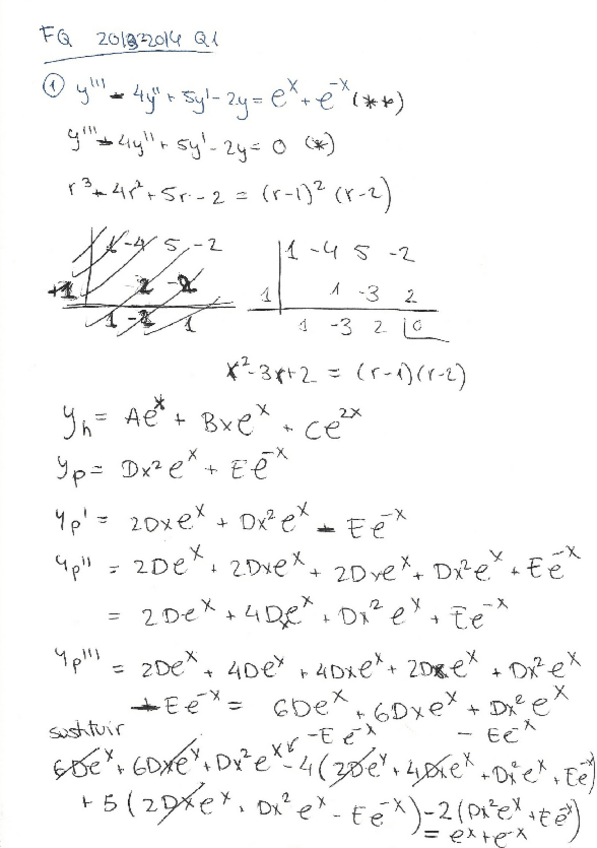 FQ 2013-2014 Q1
① y''' - 4y'' + 5y' - 2y = e^x + e^-x (**)
y''' - 4y'' + 5y' - 2y = 0 (*)
r^3 - 4r^2 + 5r - 2 = (r-1)^2 (r-2)
1 -4 5 -2
+1 2 -2
1 -2 1
1 -4 5 -2
1 1 -3 2
1 -3 2 0
x^2 - 3r + 2 = (r-1)(r-2)
y_h = Ae^x + Bxe^x + Ce^2x
y_p = Dx^2 e^x + Ee^-x
y_p' = 2Dxe^x + Dx^2 e^x - Ee^-x
y_p'' = 2De^x + 2Dxe^x + 2Dxe^x + Dx^2 e^x + Ee^-x
= 2De^x + 4Dxe^x + Dx^2 e^x + Ee^-x
y_p''' = 2De^x + 4De^x + 4Dxe^x + 2Dxe^x + Dx^2 e^x
- Ee^-x = 6De^x + 6Dxe^x + Dx^2 e^x
- Ee^-x
sustituir
- E e^-x
6De^x + 6Dxe^x + Dx^2 e^x - 4(2De^x + 4Dxe^x + Dx^2 e^x + Ee^-x)
+ 5(2Dxe^x + Dx^2 e^x - Ee^-x) - 2(Dx^2 e^x + Ee^-x)
= e^x + e^-x